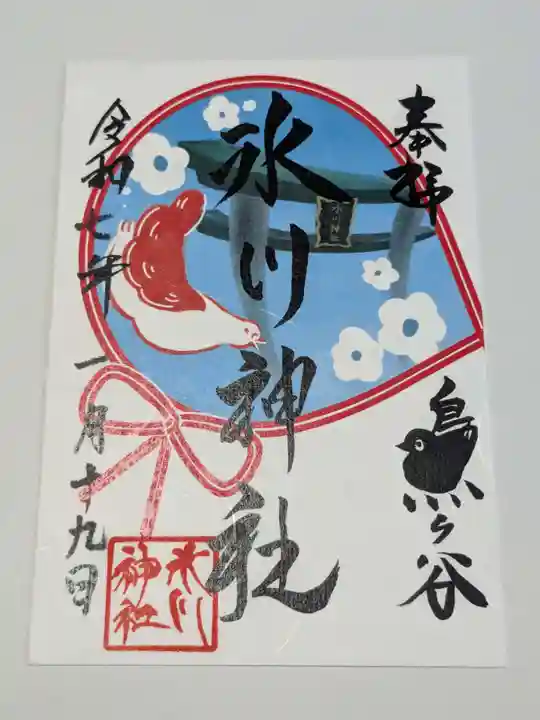 奉拝
鳩ヶ谷
氷川神社
令和七年一月十九日
氷川
神社